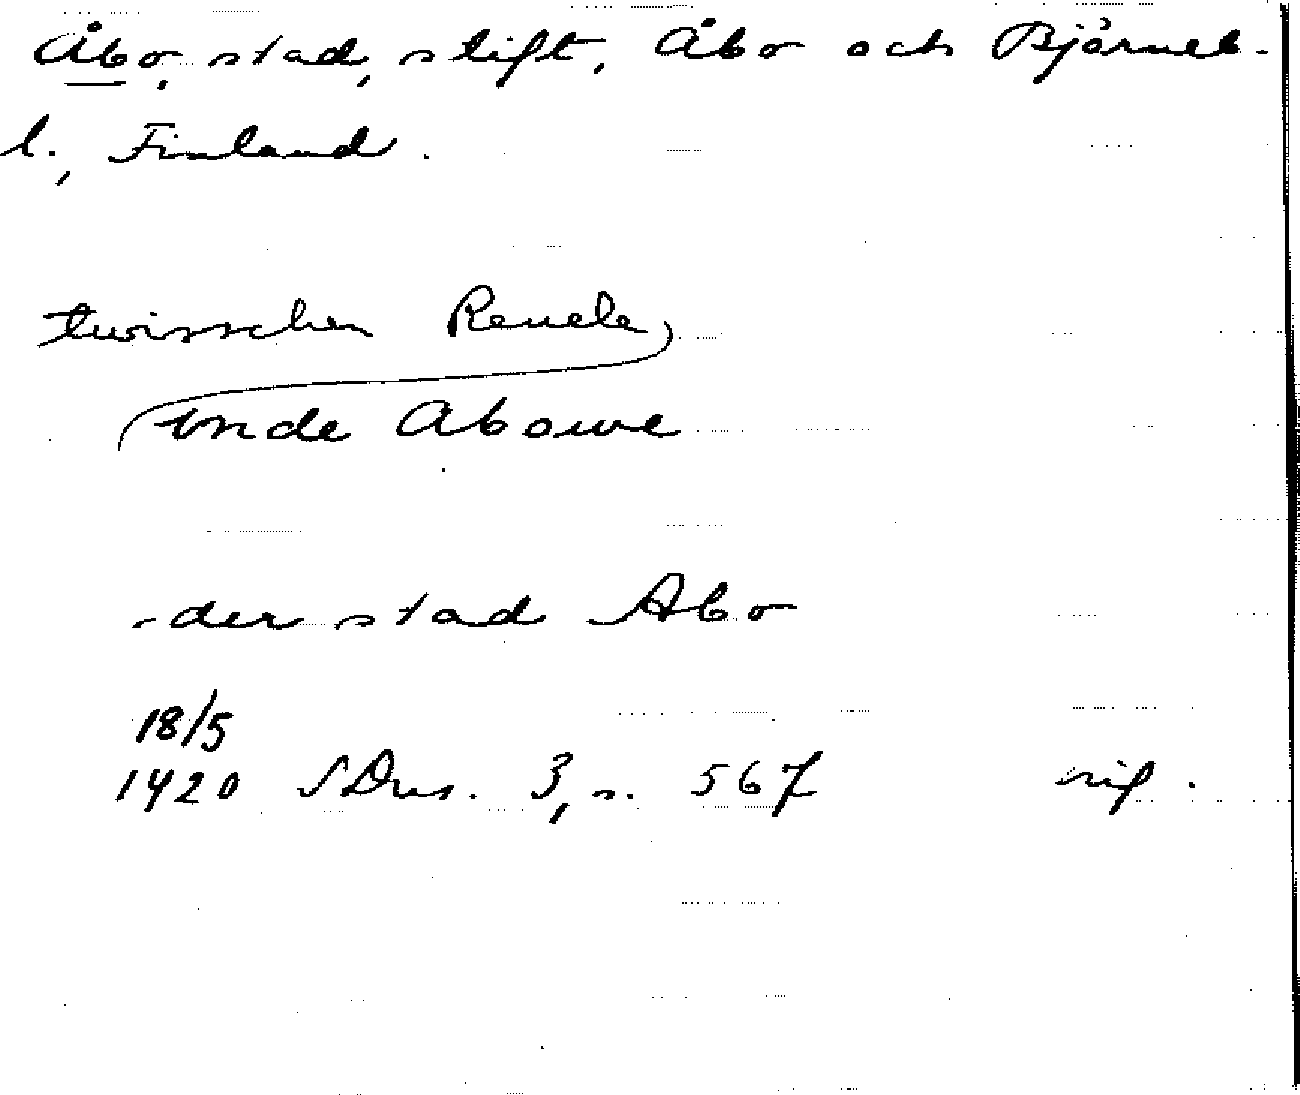 Åbo, stad, stift, Åbo och Björneb.
l., Finland.
twisschen Reuele
vnde Abowe
-der stad Abo
18/5
1420 SDns. 3, s. 567